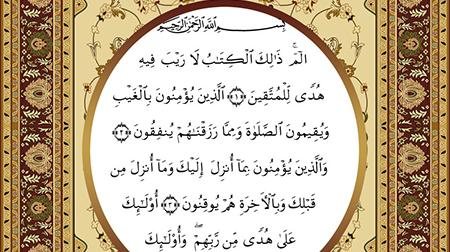 بِسْمِ ٱللَّهِ ٱلرَّحْمَٰنِ ٱلرَّحِيمِ
الٓمٓ ۚ ذَٰلِكَ ٱلْكِتَٰبُ لَا رَيْبَ فِيهِ
هُدًى لِّلْمُتَّقِينَ ﴿١﴾ ٱلَّذِينَ يُؤْمِنُونَ بِٱلْغَيْبِ
وَيُقِيمُونَ ٱلصَّلَوٰةَ وَمِمَّا رَزَقْنَٰهُمْ يُنفِقُونَ ﴿٢﴾
وَٱلَّذِينَ يُؤْمِنُونَ بِمَا أُنزِلَ إِلَيْكَ وَمَا أُنزِلَ مِن
قَبْلِكَ وَبِٱلْأَخِرَةِ هُمْ يُوقِنُونَ ﴿٣﴾ أُوْلَٰٓئِكَ
عَلَىٰ هُدًى مِّن رَّبِّهِمْ ۖ وَأُوْلَٰٓئِكَ